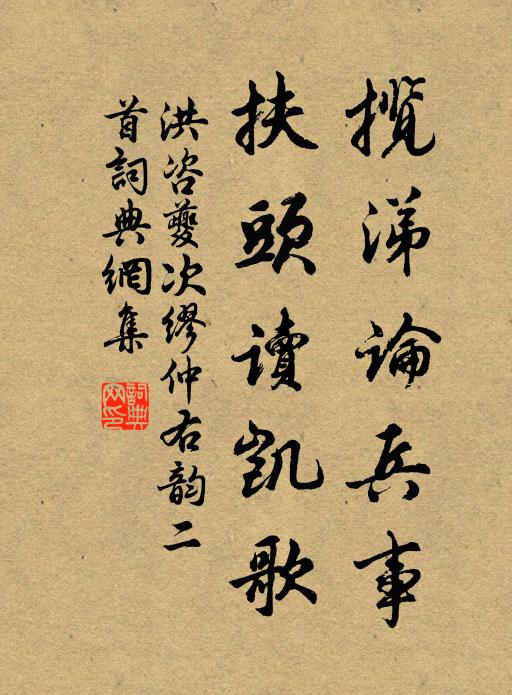 攬涕論兵事
扶頭讀凱歌
洪咨夔次繆仲右韵二
首詞典網集
詞典
网印